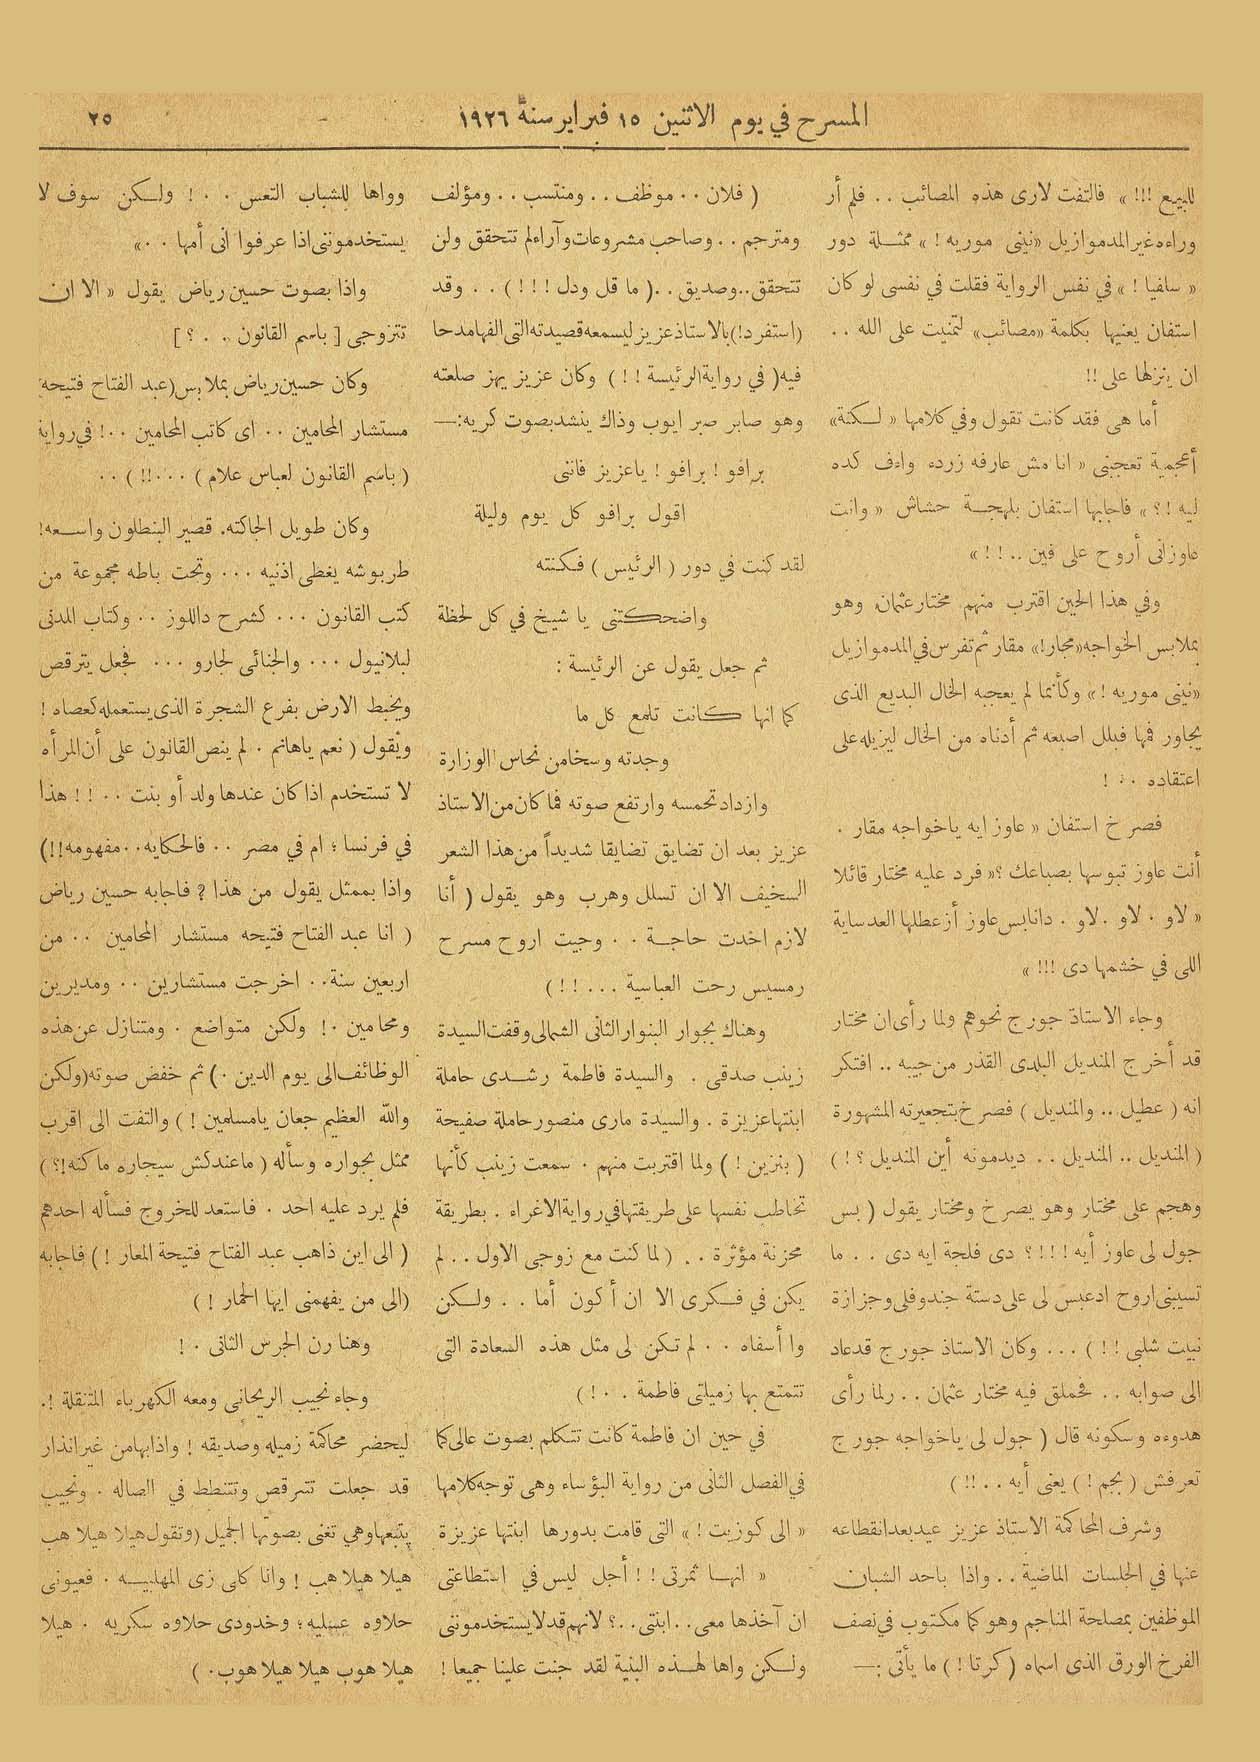 المسرح في يوم الاثنين ١٥ فبراير سنة ١٩٢٦
٢٥
للبيع !!! » فالتفت لارى هذه المصائب . . فلم أر
وراءه غير المدموازيل «نينى موريه ! » ممثلة دور
« سلفيا ! » في نفس الرواية فقلت في نفسى لو كان
استفان يعنيها بكلمة «مصائب» لتمنيت على الله . .
ان ينزلها على !!
أما هى فقد كانت تقول وفي كلامها « لكنة»
أعجمية تعجبنى « انا مش عارفه زرده واءف كده
ليه ! ؟ » فاجابها استفان بلهجة حشاش « وانت
عاوزانى أروح على فين . . ! ! »
وفي هذا الحين اقترب منهم مختار عثمان وهو
بملابس الخواجه «مجار!» مقار ثم تفرس في المدموازيل
«نينى موريه ! » وكأنما لم يعجبه الخال البديع الذى
يجاور فمها فبلل اصبعه ثم أدناه من الخال ليزيله على
اعتقاده . . !
فصرخ استفان « عاوز ايه ياخواجه مقار .
أنت عاوز تبوسها بصباعك ؟» فرد عليه مختار قائلا
« لاو . لاو . لاو . دانا بس عاوز أزعطلها العدساية
اللى في خشمها دى !!! »
وجاء الاستاذ جورج نحوهم ولما رأى ان مختار
قد أخرج المنديل البلدى القذر من جيبه . . افتكر
انه ( عطيل . . والمنديل ) فصرخ بتجعيرته المشهورة
( المنديل . . المنديل . . ديدمونه أين المنديل ؟ ! )
وهجم على مختار وهو يصرخ ومختار يقول ( بس
جول لى عاوز أيه ! ! ! ؟ دى فلجة ايه دى . . ما
تسيبنى اروح ادعبس لى على دستة جندوفلى وجزازة
نبيت شلبى ! ! ) . . . وكان الاستاذ جورج قد عاد
الى صوابه . . فحملق فيه مختار عثمان . . ولما رأى
هدوءه وسكونه قال ( جول لى ياخواجه جورج
تعرفش ( بجم ! ) يعنى أيه . . . !! )
وشرف المحاكمة الاستاذ عزيز عيد بعد انقطاعه
عنها في الجلسات الماضية . . واذا باحد الشبان
الموظفين بمصلحة المناجم وهو كما مكتوب في نصف
الفرخ الورق الذى اسماه ( كرتا ! ) ما يأتى :—
( فلان . . موظف . . ومنتسب . . ومؤلف
ومترجم . . وصاحب مشروعات وآراء لم تتحقق ولن
تتحقق . . وصديق . . ( ما قل ودل ! ! ! ) . . وقد
(استفرد!) بالاستاذ عزيز ليسمعه قصيدته التى الفها مدحا
فيه ( في رواية الرئيسة ! ! ) وكان عزيز يهز صلعته
وهو صابر صبر ايوب وذاك ينشد بصوت كريه:—
برافو ! برافو ! ياعزيز فاننى
اقول برافو كل يوم وليلة
لقد كنت في دور ( الرئيس ) فكنته
واضحكتنى يا شيخ في كل لحظة
ثم جعل يقول عن الرئيسة :
كما انها كانت تلمع كل ما
وجدته وسخا من نحاس الوزارة
وازداد تحمسه وارتفع صوته فما كان من الاستاذ
عزيز بعد ان تضايق تضايقا شديداً من هذا الشعر
السخيف الا ان تسلل وهرب وهو يقول ( أنا
لازم اخدت حاجة . . وجيت اروح مسرح
رمسيس رحت العباسية . . . ! ! )
وهناك بجوار البنوار الثانى الشمالى وقفت السيدة
زينب صدقى . والسيدة فاطمة رشدى حاملة
ابنتها عزيزة . والسيدة مارى منصور حاملة صفيحة
( بنزين ! ) ولما اقتربت منهم . سمعت زينب كأنها
تخاطب نفسها على طريقتها في رواية الاغراء . بطريقة
محزنة مؤثرة . . ( لما كنت مع زوجى الاول . . لم
يكن في فكرى الا ان أكون أما . . ولكن
وا أسفاه . . لم تكن لى مثل هذه السعادة التى
تتمتع بها زميلتى فاطمة . . ! )
في حين ان فاطمة كانت تتكلم بصوت عالى كما
في الفصل الثانى من رواية البؤساء وهى توجه كلامها
« الى كوزيت ! » التى قامت بدورها ابنتها عزيزة
« انها ثمرتى ! ! أجل ليس في استطاعتى
ان آخذها معى . . ابنتى . . ؟ لانهم قد لا يستخدموننى
ولكن واها لهذه البنية لقد جنت علينا جميعا !
وواها للشباب التعس . . ! ولكن سوف لا
يستخدموننى اذا عرفوا انى أمها . . »
واذا بصوت حسين رياض يقول « الا ان
تتزوجى [ باسم القانون . . ؟ ]
وكان حسين رياض بملابس (عبد الفتاح فتيحه)
مستشار المحامين . . اى كاتب المحامين . . ! في رواية
( باسم القانون لعباس علام ) . . . !! ) . .
وكان طويل الجاكته. قصير البنطلون واسعه!
طربوشه يغطى اذنيه . . . وتحت باطه مجموعة من
كتب القانون . . . كشرح داللوز . . وكتاب المدنى
لبلانيول . . . والجنائى لجارو . . . فجعل يترقص
ويخبط الارض بفرع الشجرة الذى يستعمله كعصاه !
ويقول ( نعم ياهانم . لم ينص القانون على أن المرأه
لا تستخدم اذا كان عندها ولد أو بنت . . ! ! هذا
في فرنسا ؛ ام في مصر . . فالحكايه . . مفهومه !!)
واذا بممثل يقول من هذا ? فاجابه حسين رياض
( انا عبد الفتاح فتيحه مستشار المحامين . . من
اربعين سنة . . اخرجت مستشارين . . ومديرين
ومحامين . ! ولكن متواضع . ومتنازل عن هذه
الوظائف الى يوم الدين . ) ثم خفض صوته (ولكن
والله العظيم جعان يامسلمين ! ) والتفت الى اقرب
ممثل بجواره وسأله ( ماعندكش سيجاره ماكنه!؟ )
فلم يرد عليه احد . فاستعد للخروج فسأله احدهم
( الى اين ذاهب عبد الفتاح فتيحة المعار ! ) فاجابه
(الى من يفهمنى ايها الحمار ! )
وهنا رن الجرس الثانى . !
وجاء نجيب الريحانى ومعه الكهرباء المتنقلة !.
ليحضر محاكمة زميله وصديقه ! واذا بها من غير انذار
قد جعلت تترقص وتتنطط في الصاله . ونجيب
يتبعها وهي تغنى بصوتها الجميل (وتقول هيلا هيلا هب
هيلا هيلا هب ! وانا كلى زى المهلبيه . فعيونى
حلاوه عسليه ؛ وخدودى حلاوه سكريه . هيلا
هيلا هوب هيلا هيلا هوب . )